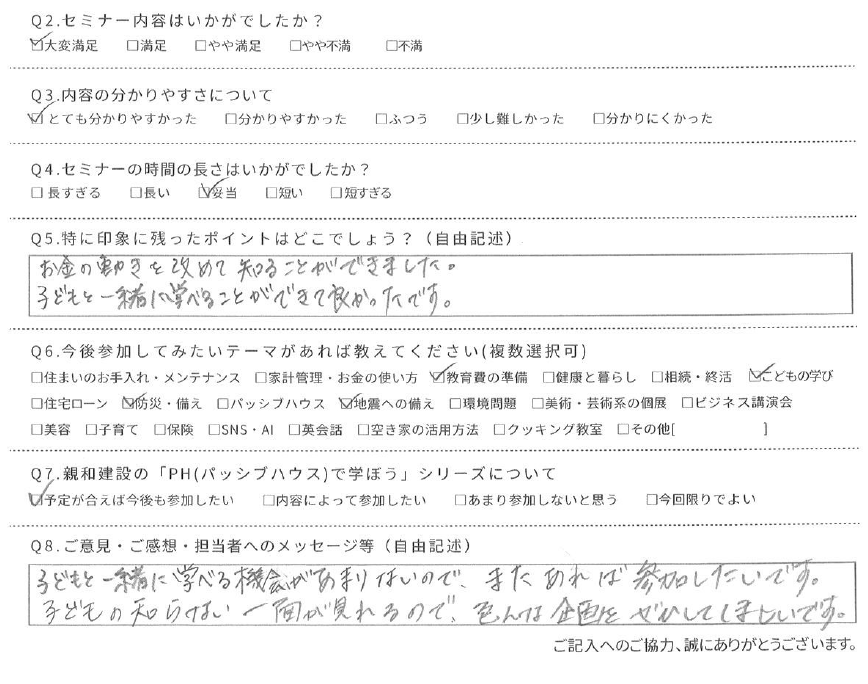 Q2.セミナー内容はいかがでしたか？
☑大変満足 □満足 □やや満足 □やや不満 □不満
Q3.内容の分かりやすさについて
☑とても分かりやすかった □分かりやすかった □ふつう □少し難しかった □分かりにくかった
Q4.セミナーの時間の長さはいかがでしたか？
□長すぎる □長い ☑妥当 □短い □短すぎる
Q5.特に印象に残ったポイントはどこでしょう？（自由記述）
お金の動きを改めて知ることができました。
子どもと一緒に学べることができて良かったです。
Q6.今後参加してみたいテーマがあれば教えてください(複数選択可)
□住まいのお手入れ・メンテナンス □家計管理・お金の使い方 ☑教育費の準備 □健康と暮らし □相続・終活 ☑こどもの学び
□住宅ローン ☑防災・備え □パッシブハウス ☑地震への備え □環境問題 □美術・芸術系の個展 □ビジネス講演会
□美容 □子育て □保険 □SNS・AI □英会話 □空き家の活用方法 □クッキング教室 □その他[ ]
Q7.親和建設の「PH(パッシブハウス)で学ぼう」シリーズについて
☑予定が合えば今後も参加したい □内容によって参加したい □あまり参加しないと思う □今回限りでよい
Q8.ご意見・ご感想・担当者へのメッセージ等（自由記述）
子どもと一緒に学べる機会があまりないので、またあれば参加したいです。
子どもの知らない一面が見れるので、色んな企画をぜひしてほしいです。
ご記入へのご協力、誠にありがとうございます。